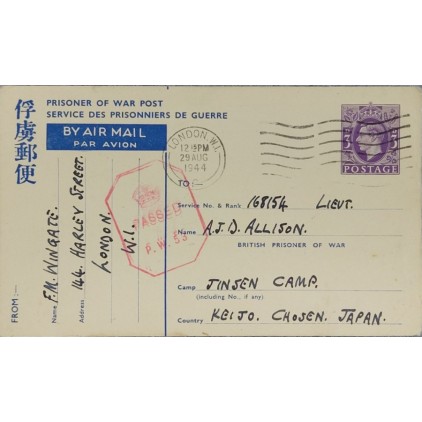 俘虜郵便
PRISONER OF WAR POST
SERVICE DES PRISONNIERS DE GUERRE
BY AIR MAIL
PAR AVION
LONDON. W.1.
12 PM
29 AUG
1944
POSTAGE
PASSED
P.W. 53
TO:—
Service No. & Rank 168154 LIEUT.
Name A.J.D. ALLISON.
BRITISH PRISONER OF WAR
Camp JINSEN CAMP.
(including No., if any)
Country KEIJO. CHOSEN. JAPAN.
FROM:—
Name F.M. WINGATE.
Address 144. HARLEY STREET.
LONDON.
W.1.